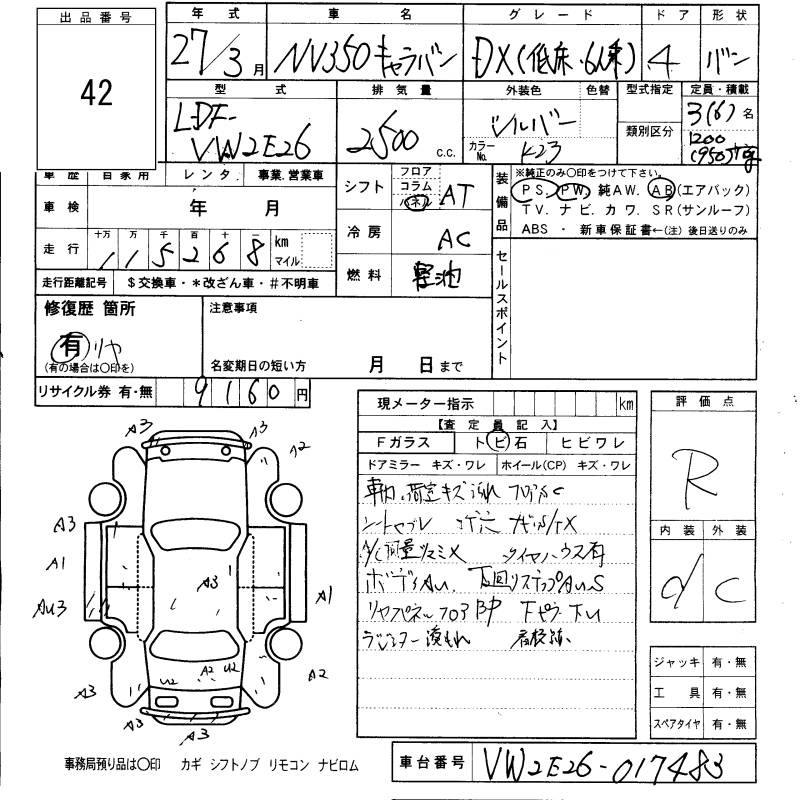 出品番号
42
年式
27/3月
車名
NV350 キャラバン
グレード
DX(低床・6人乗)
ドア
4
形状
バン
型式
LDF-
VW2E26
排気量
2500 c.c.
外装色
シルバー
色替
カラーNo. K23
型式指定
類別区分
定員・積載
3(6)名
1200
(950)
車歴 自家用 レンタ 事業.営業車
車検 年 月
走行 十万 万 千 百 十 一
115268 km
マイル
走行距離記号 $交換車・*改ざん車・#不明車
シフト フロア コラム AT
冷房 AC
燃料 軽油
装備品
※純正のみ〇印をつけて下さい。
PS. PW. 純AW. AB(エアバック)
TV. ナビ. カワ. SR(サンルーフ)
ABS ・ 新車保証書←(注)後日送りのみ
セールスポイント
修復歴 箇所
有 リヤ
(有の場合は〇印を)
注意事項
名変期日の短い方 月 日まで
リサイクル券 有・無 9160円
現メーター指示 km
【査定員記入】
Fガラス トビ石 ヒビワレ
ドアミラー キズ・ワレ ホイール(CP) キズ・ワレ
車内・荷室キズ汚れ
タイヤハウス有
ボディAU.
評価点
R
内装 外装
d C
ジャッキ 有・無
工具 有・無
スペアタイヤ 有・無
A3 A3 A2
A3
A1
AU3
A3
A1
A2 U2
U2
A3
A2
A3
A3
事務局預り品は〇印 カギ シフトノブ リモコン ナビロム
車台番号 VW2E26-017483